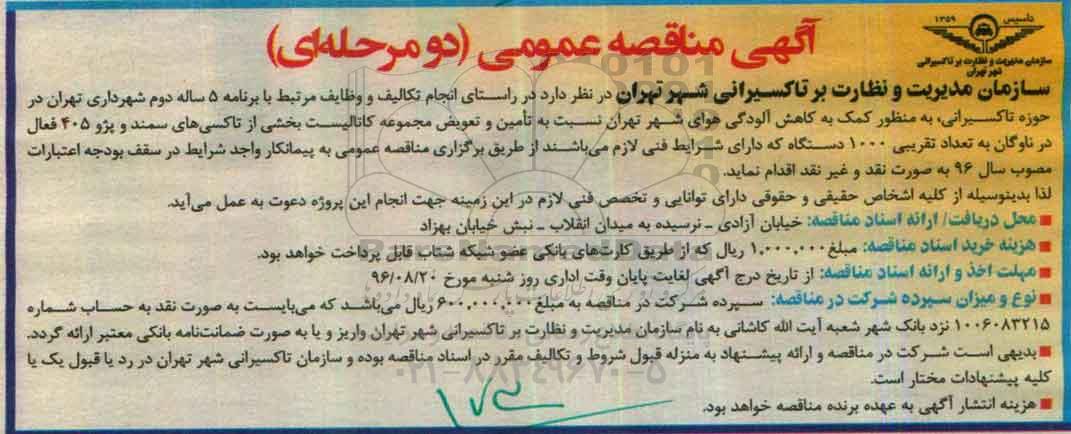 تاسیس ۱۳۵۹
سازمان مدیریت و نظارت بر تاکسیرانی
شهر تهران
آگهی مناقصه عمومی (دو مرحله‌ای)
سازمان مدیریت و نظارت بر تاکسیرانی شهر تهران در نظر دارد در راستای انجام تکالیف و وظایف مرتبط با برنامه ۵ ساله دوم شهرداری تهران در
حوزه تاکسیرانی، به منظور کمک به کاهش آلودگی هوای شهر تهران نسبت به تأمین و تعویض مجموعه کاتالیست بخشی از تاکسی‌های سمند و پژو ۴۰۵ فعال
در ناوگان به تعداد تقریبی ۱۰۰۰ دستگاه که دارای شرایط فنی لازم می‌باشند از طریق برگزاری مناقصه عمومی به پیمانکار واجد شرایط در سقف بودجه اعتبارات
مصوب سال ۹۶ به صورت نقد و غیر نقد اقدام نماید.
لذا بدینوسیله از کلیه اشخاص حقیقی و حقوقی دارای توانایی و تخصص فنی لازم در این زمینه جهت انجام این پروژه دعوت به عمل می‌آید.
■ محل دریافت/ ارائه اسناد مناقصه: خیابان آزادی ـ نرسیده به میدان انقلاب ـ نبش خیابان بهزاد
■ هزینه خرید اسناد مناقصه: مبلغ ۱.۰۰۰.۰۰۰ ریال که از طریق کارت‌های بانکی عضو شبکه شتاب قابل پرداخت خواهد بود.
■ مهلت اخذ و ارائه اسناد مناقصه: از تاریخ درج آگهی لغایت پایان وقت اداری روز شنبه مورخ ۹۶/۰۸/۲۰
■ نوع و میزان سپرده شرکت در مناقصه: سپرده شرکت در مناقصه به مبلغ ۶۰۰.۰۰۰.۰۰۰ ریال می‌باشد که می‌بایست به صورت نقد به حساب شماره
۱۰۰۶۰۸۳۲۱۵ نزد بانک شهر شعبه آیت الله کاشانی به نام سازمان مدیریت و نظارت بر تاکسیرانی شهر تهران واریز و یا به صورت ضمانت‌نامه بانکی معتبر ارائه گردد.
■ بدیهی است شرکت در مناقصه و ارائه پیشنهاد به منزله قبول شروط و تکالیف مقرر در اسناد مناقصه بوده و سازمان تاکسیرانی شهر تهران در رد یا قبول یک یا
کلیه پیشنهادات مختار است.
۰۲۱-۸۸۳۴۹۶۷۰-۵
■ هزینه انتشار آگهی به عهده برنده مناقصه خواهد بود.